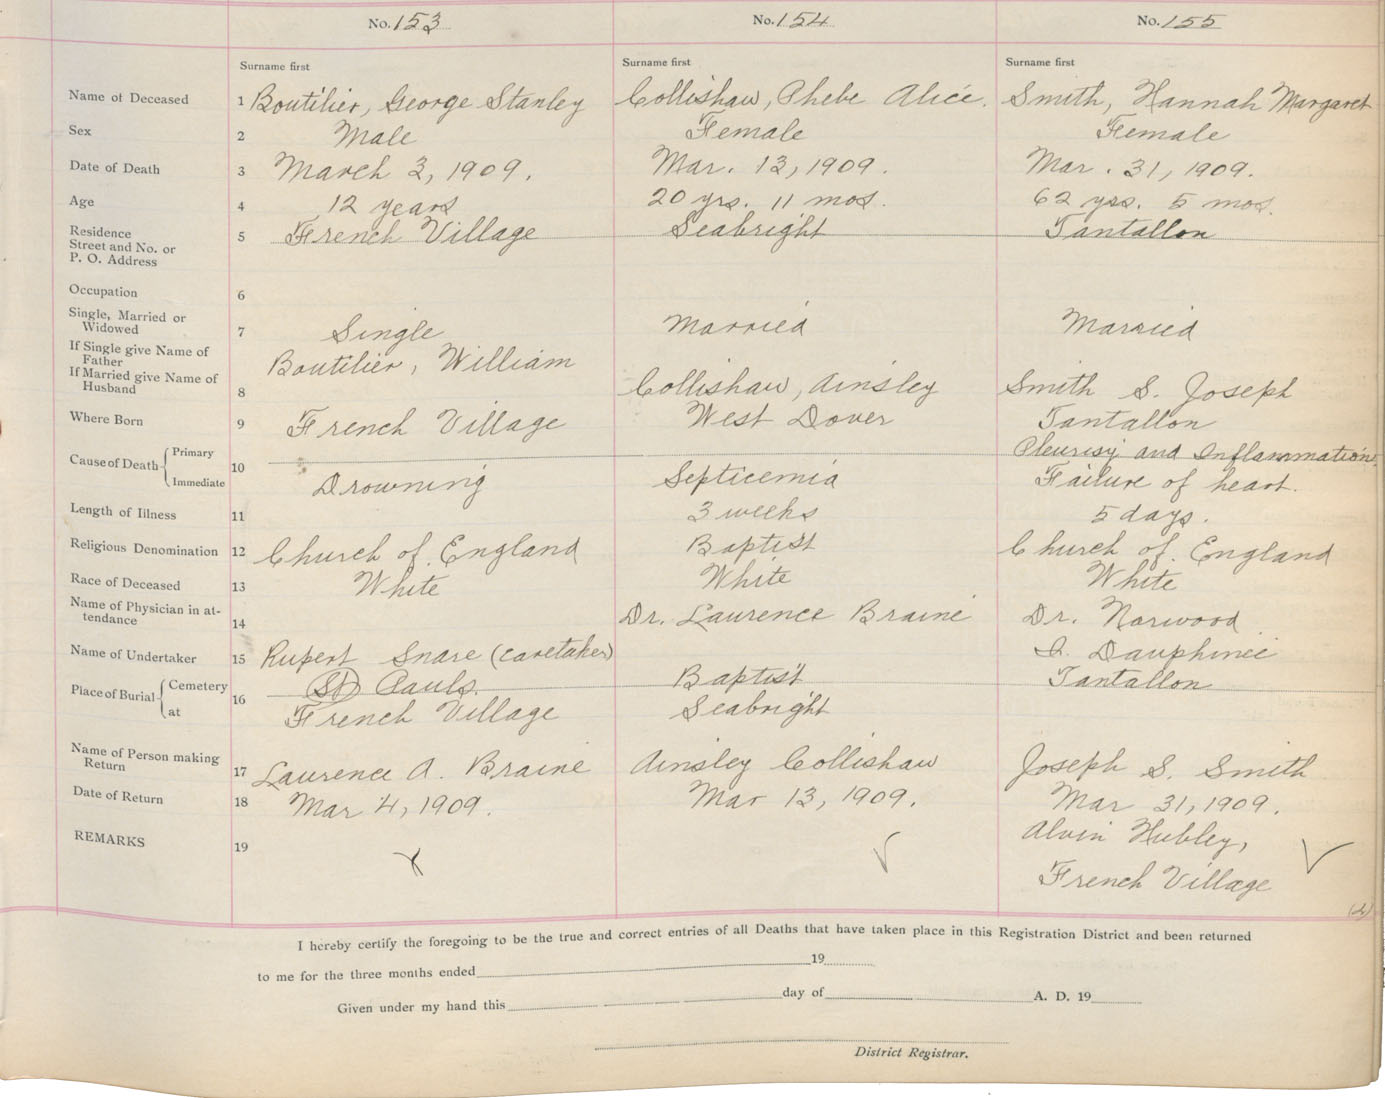 No. 153 No. 154 No. 155
Surname first Surname first Surname first
Name of Deceased 1 Boutilier, George Stanley Collishaw, Phebe Alice. Smith, Hannah Margaret
Sex 2 Male Female Female
Date of Death 3 March 3, 1909. Mar. 13, 1909. Mar. 31, 1909.
Age 4 12 years 20 yrs. 11 mos. 62 yrs. 5 mos.
Residence 5 French Village Seabright Tantallon
Street and No. or
P. O. Address
Occupation 6
Single, Married or
Widowed 7 Single Married Married
If Single give Name of
Father Boutilier, William
If Married give Name of
Husband 8 Collishaw, Ainsley Smith S. Joseph
Where Born 9 French Village West Dover Tantallon
Cause of Death Primary 10 Pleurisy and Inflammation.
Immediate Drowning Septicemia Failure of heart.
Length of Illness 11 3 weeks 5 days.
Religious Denomination 12 Church of England Baptist Church of England
Race of Deceased 13 White White White
Name of Physician in at-
tendance 14 Dr. Laurence Braine Dr. Norwood
Name of Undertaker 15 Rupert Snare (caretaker) I. Dauphinee
Place of Burial Cemetery 16 St Pauls. Baptist Tantallon
at French Village Seabright
Name of Person making
Return 17 Laurence A. Braine Ainsley Collishaw Joseph S. Smith
Date of Return 18 Mar 4, 1909. Mar 13, 1909. Mar 31, 1909.
REMARKS 19 Alvin Hubley,
French Village
I hereby certify the foregoing to be the true and correct entries of all Deaths that have taken place in this Registration District and been returned
to me for the three months ended 19
Given under my hand this day of A. D. 19
District Registrar.